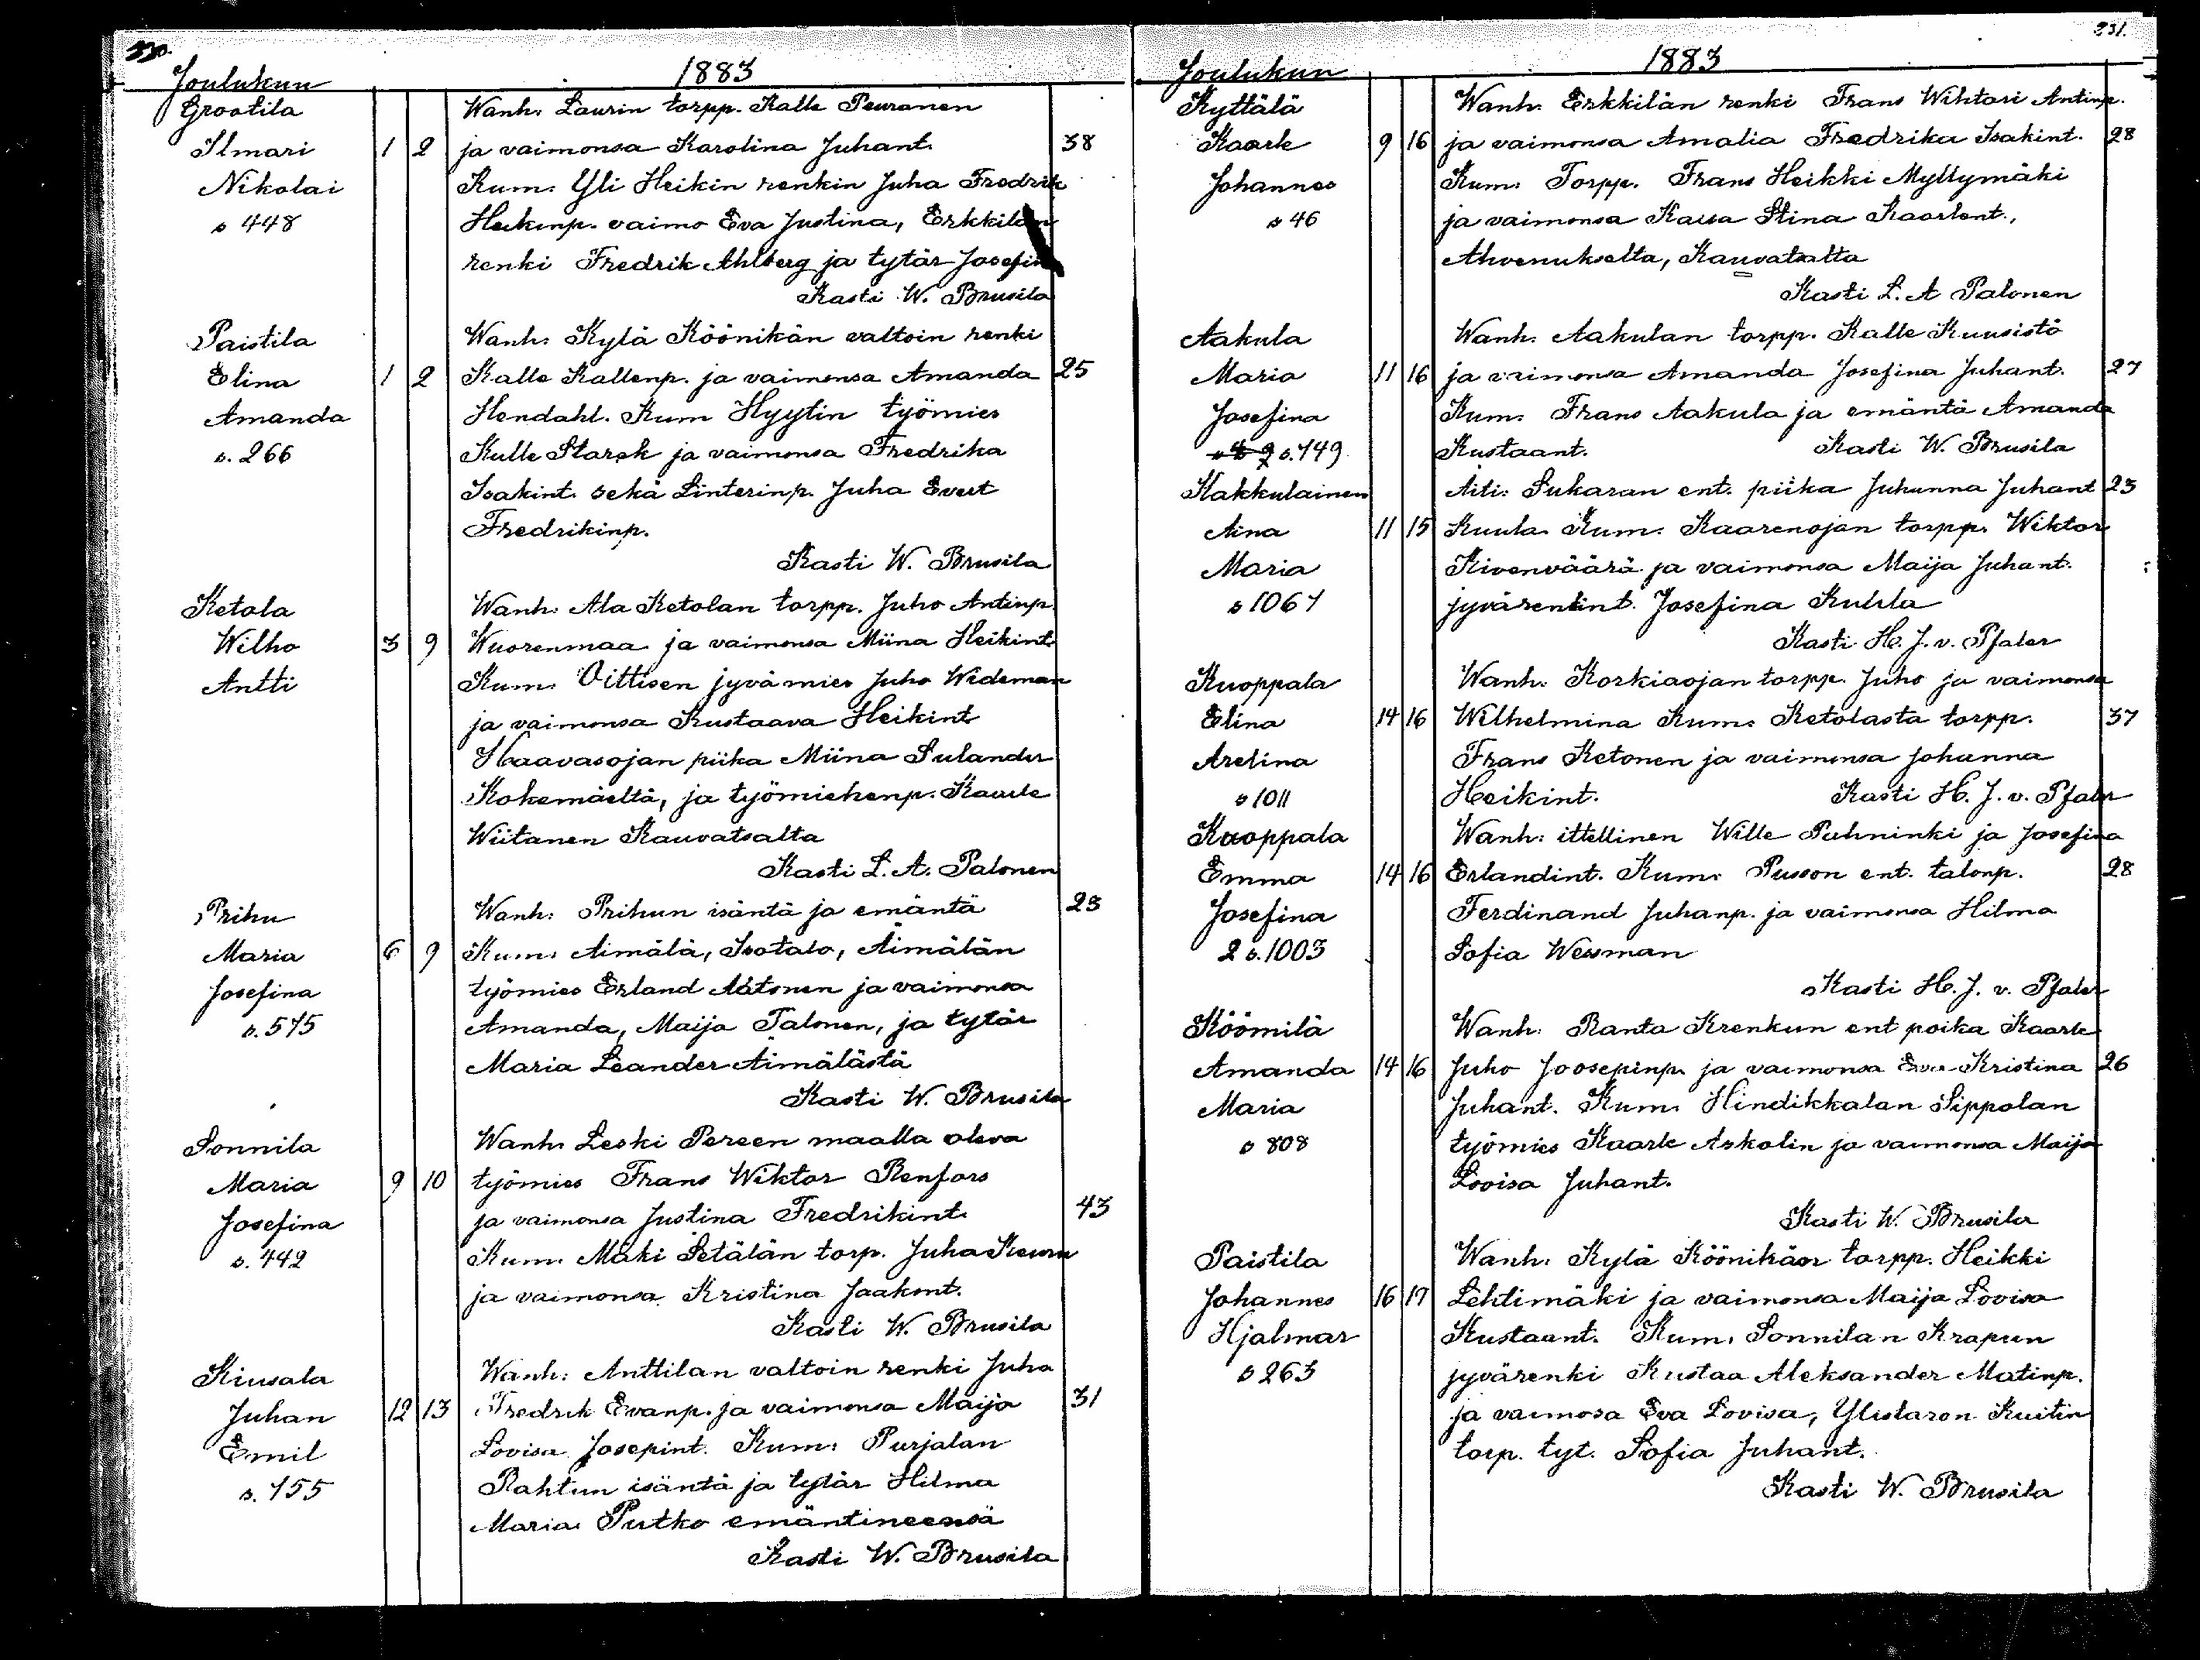 330.
Joulukun 1883
Grootila Wanh. Laurin torpp. Kalle Peuranen
Ilmari 1 2 ja vaimonsa Karolina Juhant. 38
Nikolai Kum. Yli Heikin renkin Juha Fredrik
s 448 Heikinp. vaimo Eva Justina, Erkkilän
renki Fredrik Ahlberg ja tytär Josefin
Kasti W. Brusila
Paistila Wanh. Kylä Köönikän valtoin renki
Elina 1 2 Kalle Kallenp. ja vaimonsa Amanda 25
Amanda Hendahl. Kum Hyytin työmies
s. 266 Kulle Starck ja vaimonsa Fredrika
Isakint. sekä Linterinp. Juha Evert
Fredrikinp.
Kasti W. Brusila
Ketola Wanh. Ala Ketolan torpp. Juho Antinp.
Wilho 3 9 Wuorenmaa ja vaimonsa Miina Heikint.
Antti Kum. Vittisen jyvämies Juho Wideman
ja vaimonsa Kustaava Heikint
Haavasojan piika Miina Sulander
Kokemäeltä, ja työmiehenp. Kaarle
Wiitanen Kauvatsalta
Kasti L. A. Palonen
Prihu Wanh: Prihun isäntä ja emäntä 23
Maria 6 9 Kum. Äimälä, Isotalo, Äimälän
Josefina työmies Erland Aatonen ja vaimonsa
s. 575 Amanda, Maija Talonen, ja tytär
Maria Leander Äimälästä
Kasti W. Brusila
Sonnila Wanh. Leski Pereen maalla oleva
Maria 9 10 työmies Frans Wiktor Renfors
Josefina ja vaimonsa Justina Fredrikint. 43
s. 442 Kum. Mäki Setälän torp. Juha
ja vaimonsa Kristina Jaakont.
Kasti W. Brusila
Kiusala Wanh: Anttilan valtoin renki Juha
Juhan 12 13 Fredrik Evanp. ja vaimonsa Maija 31
Emil Lovisa Josepint. Kum: Purjalan
s. 155 Rahtun isäntä ja tytär Hilma
Maria Putko emäntineensä
Kasti W. Brusila
231.
Joulukun 1883
Kyttälä Wanh. Erkkilän renki Frans Wihtori Antinp.
Kaarle 9 16 ja vaimonsa Amalia Fredrika Isakint. 28
Johannes Kum: Torpp. Frans Heikki Myllymäki
s 46 ja vaimonsa Kaisa Stina Kaarlont.,
Ahvenukselta, Kauvatsalta
Kasti L. A Palonen
Aakula Wanh. Aakulan torpp. Kalle Kuusistö
Maria 11 16 ja vaimonsa Amanda Josefina Juhant. 27
Josefina Kum. Frans Aakula ja emäntä Amanda
s. 149 Kustaant. Kasti W. Brusila
Kakkulainen Äiti: Sukaran ent. piika Juhanna Juhant 23
Aina 11 15 Kuula. Kum. Kaarenojan torpp. Wiktor
Maria Kivenväärä ja vaimonsa Maija Juhant.
s 1067 jyvärentint. Josefina Kulila
Kasti H. J. v. Pfaler
Kuoppala Wanh. Korkiaojan torpp. Juho ja vaimonsa
Elina 14 16 Wilhelmina Kum. Ketolasta torpp. 37
Arelina Frans Ketonen ja vaimonsa Johanna
s 1011 Heikint. Kasti H. J. v. Pfaler
Kuoppala Wanh: ittellinen Wille Puhninki ja Josefina
Emma 14 16 Erlandint. Kum. Pusson ent. talonp. 28
Josefina Ferdinand Juhanp. ja vaimonsa Hilma
2 s. 1003 Sofia Wessman
Kasti H. J. v. Pfaler
Köömilä Wanh. Ranta Krenkun ent poika Kaarle
Amanda 14 16 Juho Joosepinp. ja vaimonsa Eva Kristina 26
Maria Juhant. Kum. Hindikkalan Sippolan
s 808 työmies Kaarle Askolin ja vaimonsa Maija
Lovisa Juhant.
Kasti W. Brusila
Paistila Wanh. Kylä Köönikän torpp. Heikki
Johannes 16 17 Lehtimäki ja vaimonsa Maija Lovisa
Hjalmar Kustaant. Kum. Sonnilan Krapun
s 263 jyvärenki Kustaa Aleksander Matinp.
ja vaimosa Eva Lovisa, Ylistaron Kuitin
torp. tyt. Sofia Juhant.
Kasti W. Brusila